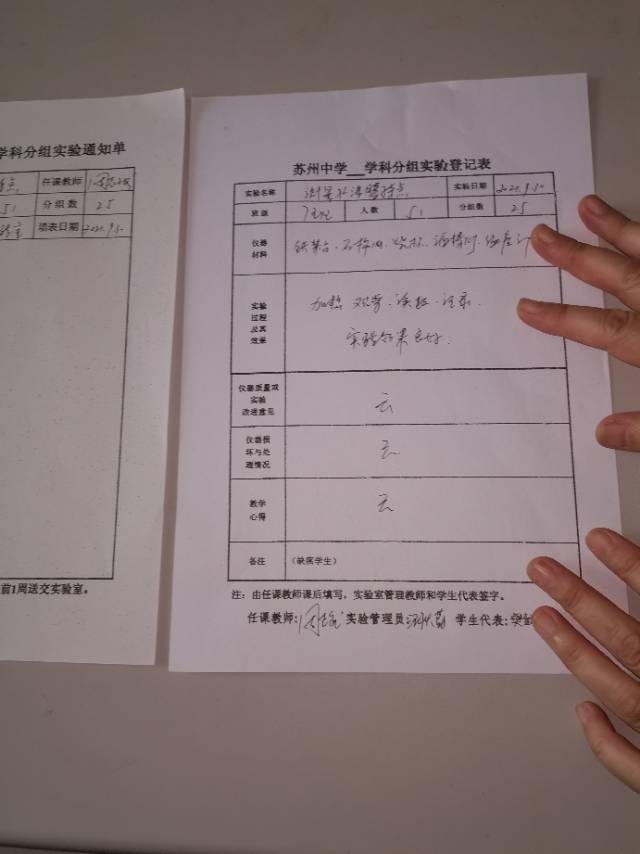 学科分组实验通知单
任课教师
51 分组数 25
填表日期 2020.9.10
前1周送交实验室。
苏州中学___学科分组实验登记表
实验名称 测量水沸腾特点 实验日期 2020.9.10
班级 人数 51 分组数 25
仪器材料 铁架台、石棉网、烧杯、酒精灯、温度计
实验过程及其效果 加热 观察、读数、记录.
实验效果良好.
仪器质量或实验改进意见 无
仪器损坏与处理情况 无
教学心得 无
备注 (缺席学生)
注:由任课教师课后填写,实验室管理教师和学生代表签字。
任课教师: 实验管理员 学生代表: